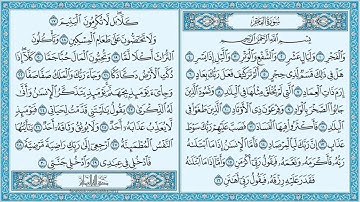 سُورَةُ الفَجْرِ
بِسْمِ اللَّهِ الرَّحْمَٰنِ الرَّحِيمِ
وَالْفَجْرِ ١ وَلَيَالٍ عَشْرٍ ٢ وَالشَّفْعِ وَالْوَتْرِ ٣ وَاللَّيْلِ إِذَا يَسْرِ ٤
هَلْ فِي ذَٰلِكَ قَسَمٌ لِّذِي حِجْرٍ ٥ أَلَمْ تَرَ كَيْفَ فَعَلَ رَبُّكَ بِعَادٍ ٦
إِرَمَ ذَاتِ الْعِمَادِ ٧ الَّتِي لَمْ يُخْلَقْ مِثْلُهَا فِي الْبِلَادِ ٨ وَثَمُودَ الَّذِينَ
جَابُوا الصَّخْرَ بِالْوَادِ ٩ وَفِرْعَوْنَ ذِي الْأَوْتَادِ ١٠ الَّذِينَ طَغَوْا فِي
الْبِلَادِ ١١ فَأَكْثَرُوا فِيهَا الْفَسَادَ ١٢ فَصَبَّ عَلَيْهِمْ رَبُّكَ سَوْطَ
عَذَابٍ ١٣ إِنَّ رَبَّكَ لَبِالْمِرْصَادِ ١٤ فَأَمَّا الْإِنسَانُ إِذَا مَا ابْتَلَاهُ
رَبُّهُ فَأَكْرَمَهُ وَنَعَّمَهُ فَيَقُولُ رَبِّي أَكْرَمَنِ ١٥ وَأَمَّا إِذَا مَا ابْتَلَاهُ
فَقَدَرَ عَلَيْهِ رِزْقَهُ فَيَقُولُ رَبِّي أَهَانَنِ ١٦
كَلَّا بَل لَّا تُكْرِمُونَ الْيَتِيمَ ١٧
وَلَا تَحَاضُّونَ عَلَىٰ طَعَامِ الْمِسْكِينِ ١٨ وَتَأْكُلُونَ
التُّرَاثَ أَكْلًا لَّمًّا ١٩ وَتُحِبُّونَ الْمَالَ حُبًّا جَمًّا ٢٠ كَلَّا إِذَا
دُكَّتِ الْأَرْضُ دَكًّا دَكًّا ٢١ وَجَاءَ رَبُّكَ وَالْمَلَكُ صَفًّا صَفًّا ٢٢
وَجِيءَ يَوْمَئِذٍ بِجَهَنَّمَ يَوْمَئِذٍ يَتَذَكَّرُ الْإِنسَانُ وَأَنَّىٰ
لَهُ الذِّكْرَىٰ ٢٣ يَقُولُ يَا لَيْتَنِي قَدَّمْتُ لِحَيَاتِي ٢٤ فَيَوْمَئِذٍ
لَّا يُعَذِّبُ عَذَابَهُ أَحَدٌ ٢٥ وَلَا يُوثِقُ وَثَاقَهُ أَحَدٌ ٢٦ يَا أَيَّتُهَا
النَّفْسُ الْمُطْمَئِنَّةُ ٢٧ ارْجِعِي إِلَىٰ رَبِّكِ رَاضِيَةً مَّرْضِيَّةً ٢٨
فَادْخُلِي فِي عِبَادِي ٢٩ وَادْخُلِي جَنَّتِي ٣٠